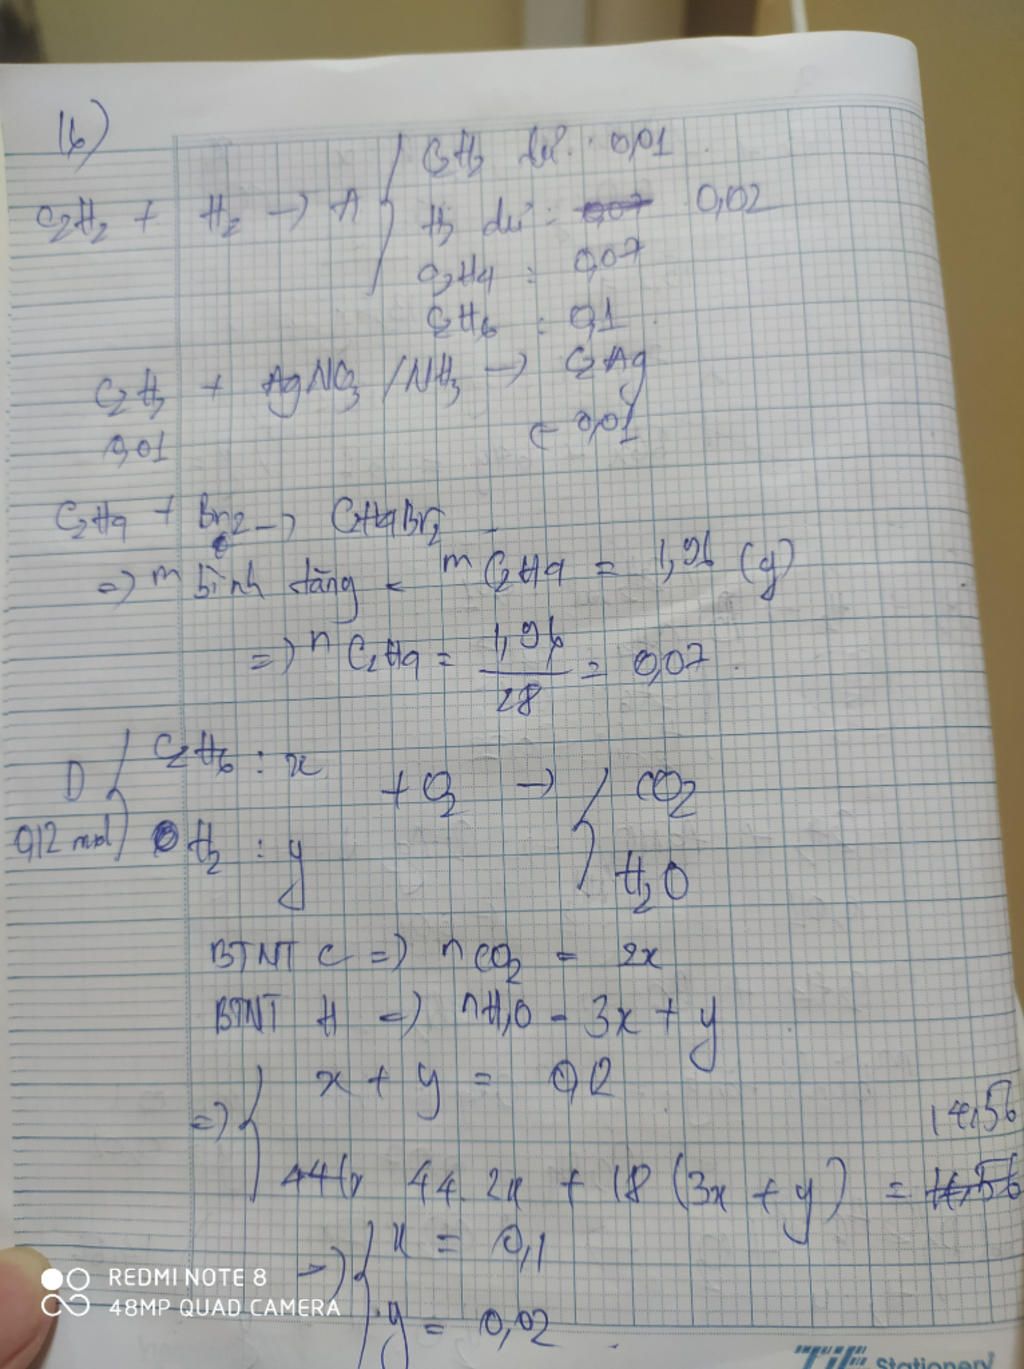 16)
C2H2 dư : 0,01
C2H2 + H2 → A
H2 dư : 0,07 0,02
C2H4 : 0,07
C2H6 : 0,1
C2H2 + AgNO3 /NH3 → C2Ag
0,01 ← 0,01
C2H4 + Br2 → C2H4Br2
=> m bình tăng = m C2H4 = 1,96 (g)
=> n C2H4 = 1,96/28 = 0,07.
D { C2H6 : x
+ O2 → { CO2
0,12 mol H2 : y
H2O
BTNT C => nCO2 = 2x
BTNT H => nH2O = 3x + y
x + y = 0,12
=> {
14,56
44(x 44. 2x + 18 (3x + y) = 11,56
=> { x = 0,1
y = 0,02.
REDMI NOTE 8
48MP QUAD CAMERA
Stationery